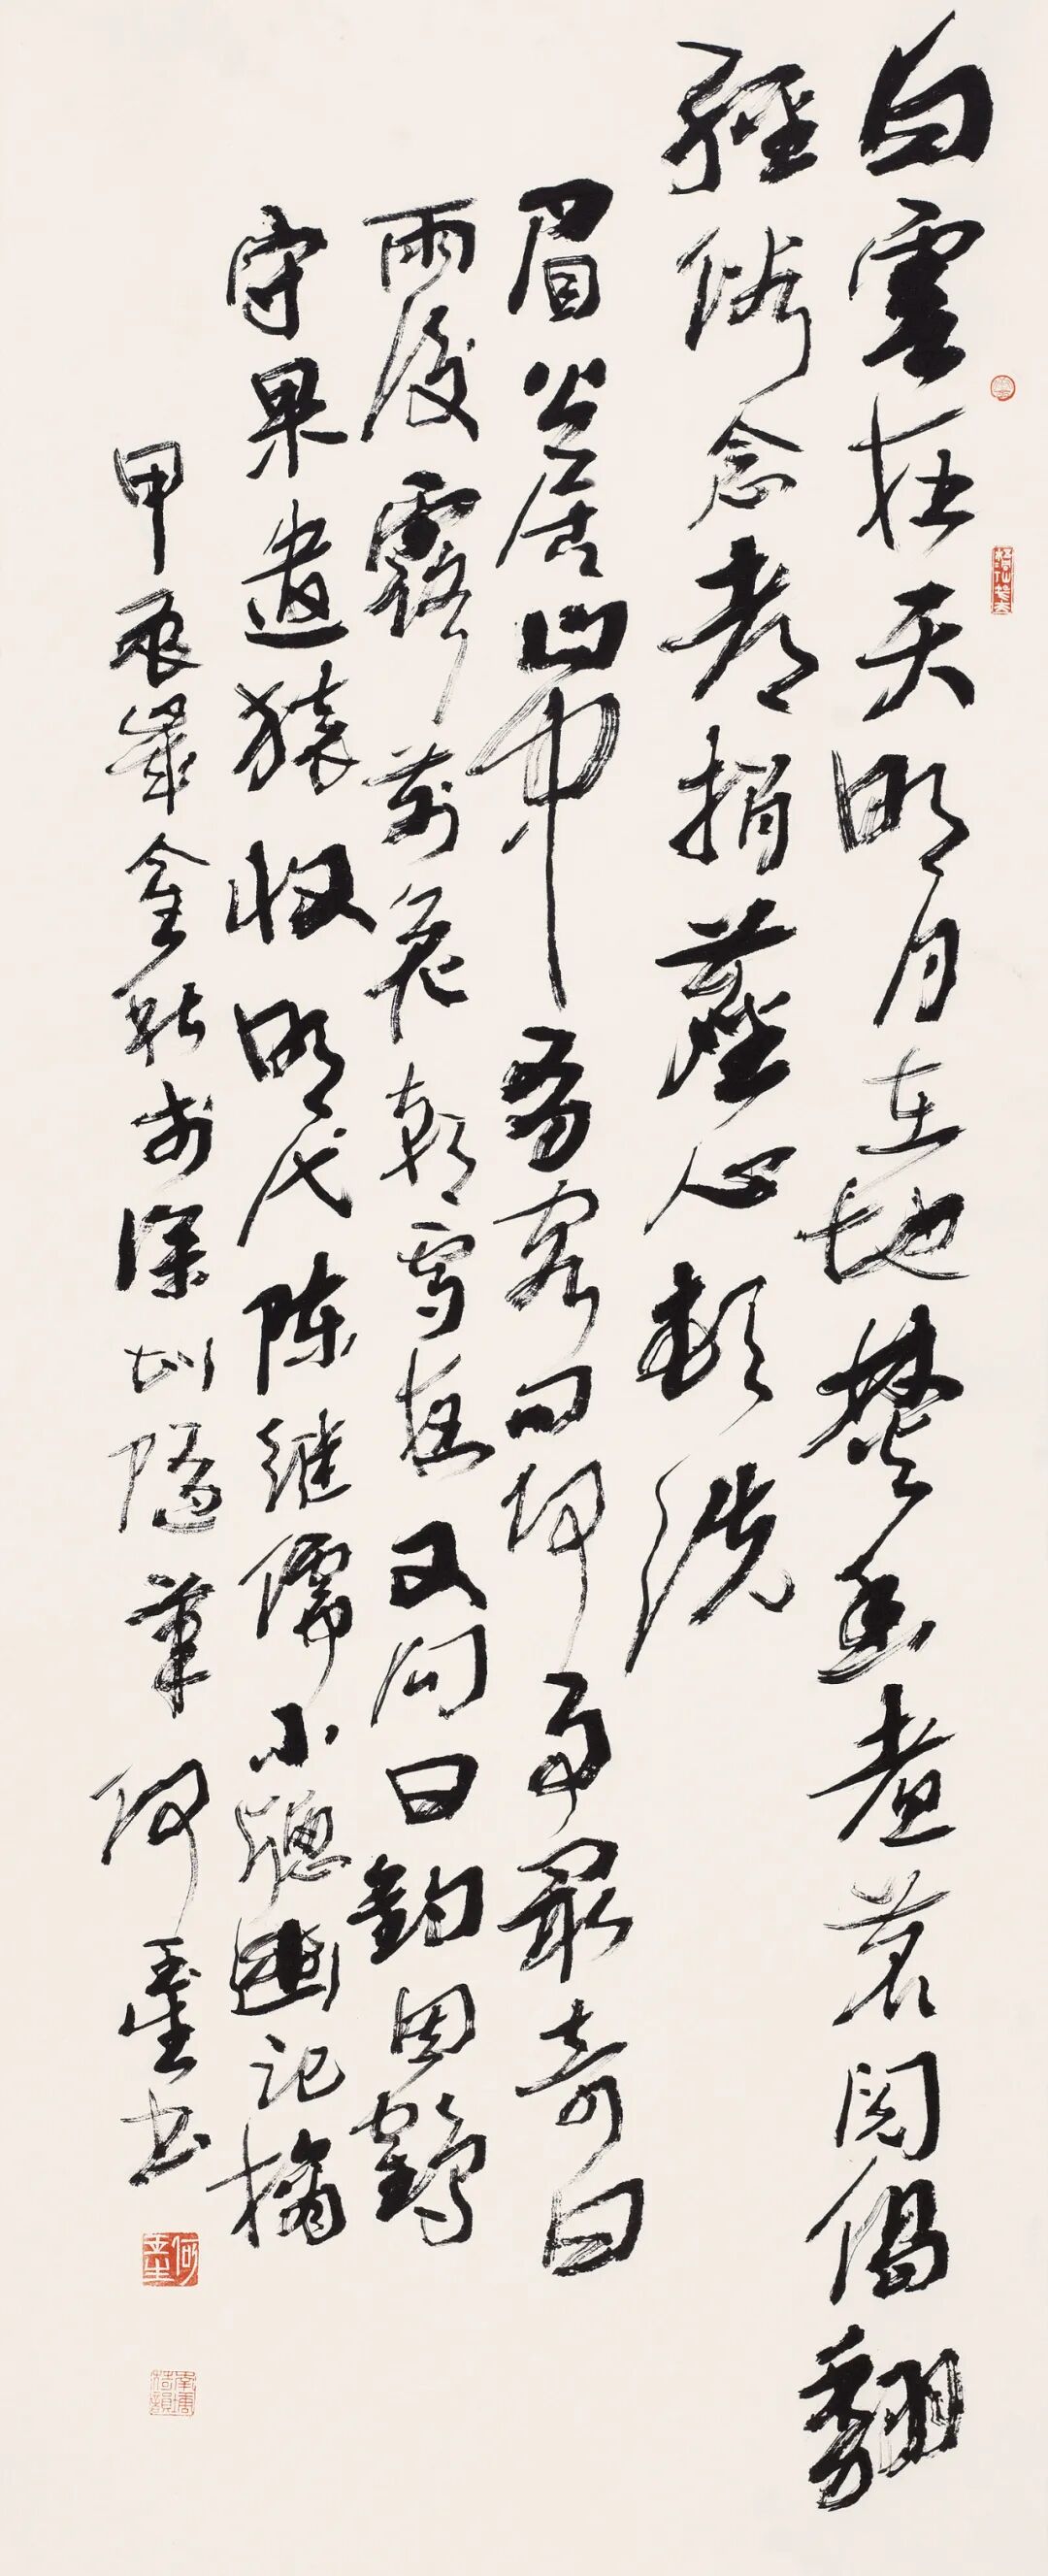 白雲在天明月在地焚香煮茗閱偈翻
經俗念都捐塵心頓洗
眉公居山中有客问何事最奇曰
雨後露前花朝雪夜又问曰釣因鶴
守果遣猿收明代陳继儒小窗幽記摘
甲辰歲金秋於深圳隨筆何書